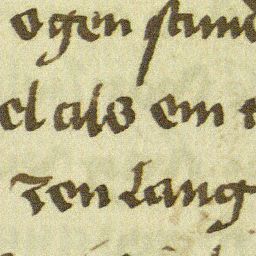 ogen stund
el als ein
zen lang